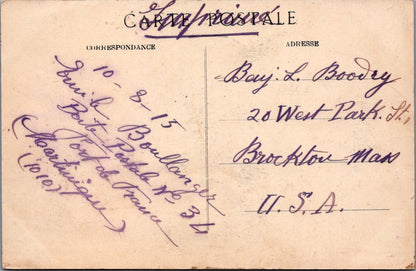 CARTE POSTALE
Imprimé
CORRESPONDANCE
ADRESSE
10-8-15
Emile Boullanger
Boite Postale No 34
Fort de France
(Martinique)
(1010)
Benj. L. Boodry
20 West Park. St,
Brockton Mass
U. S. A.